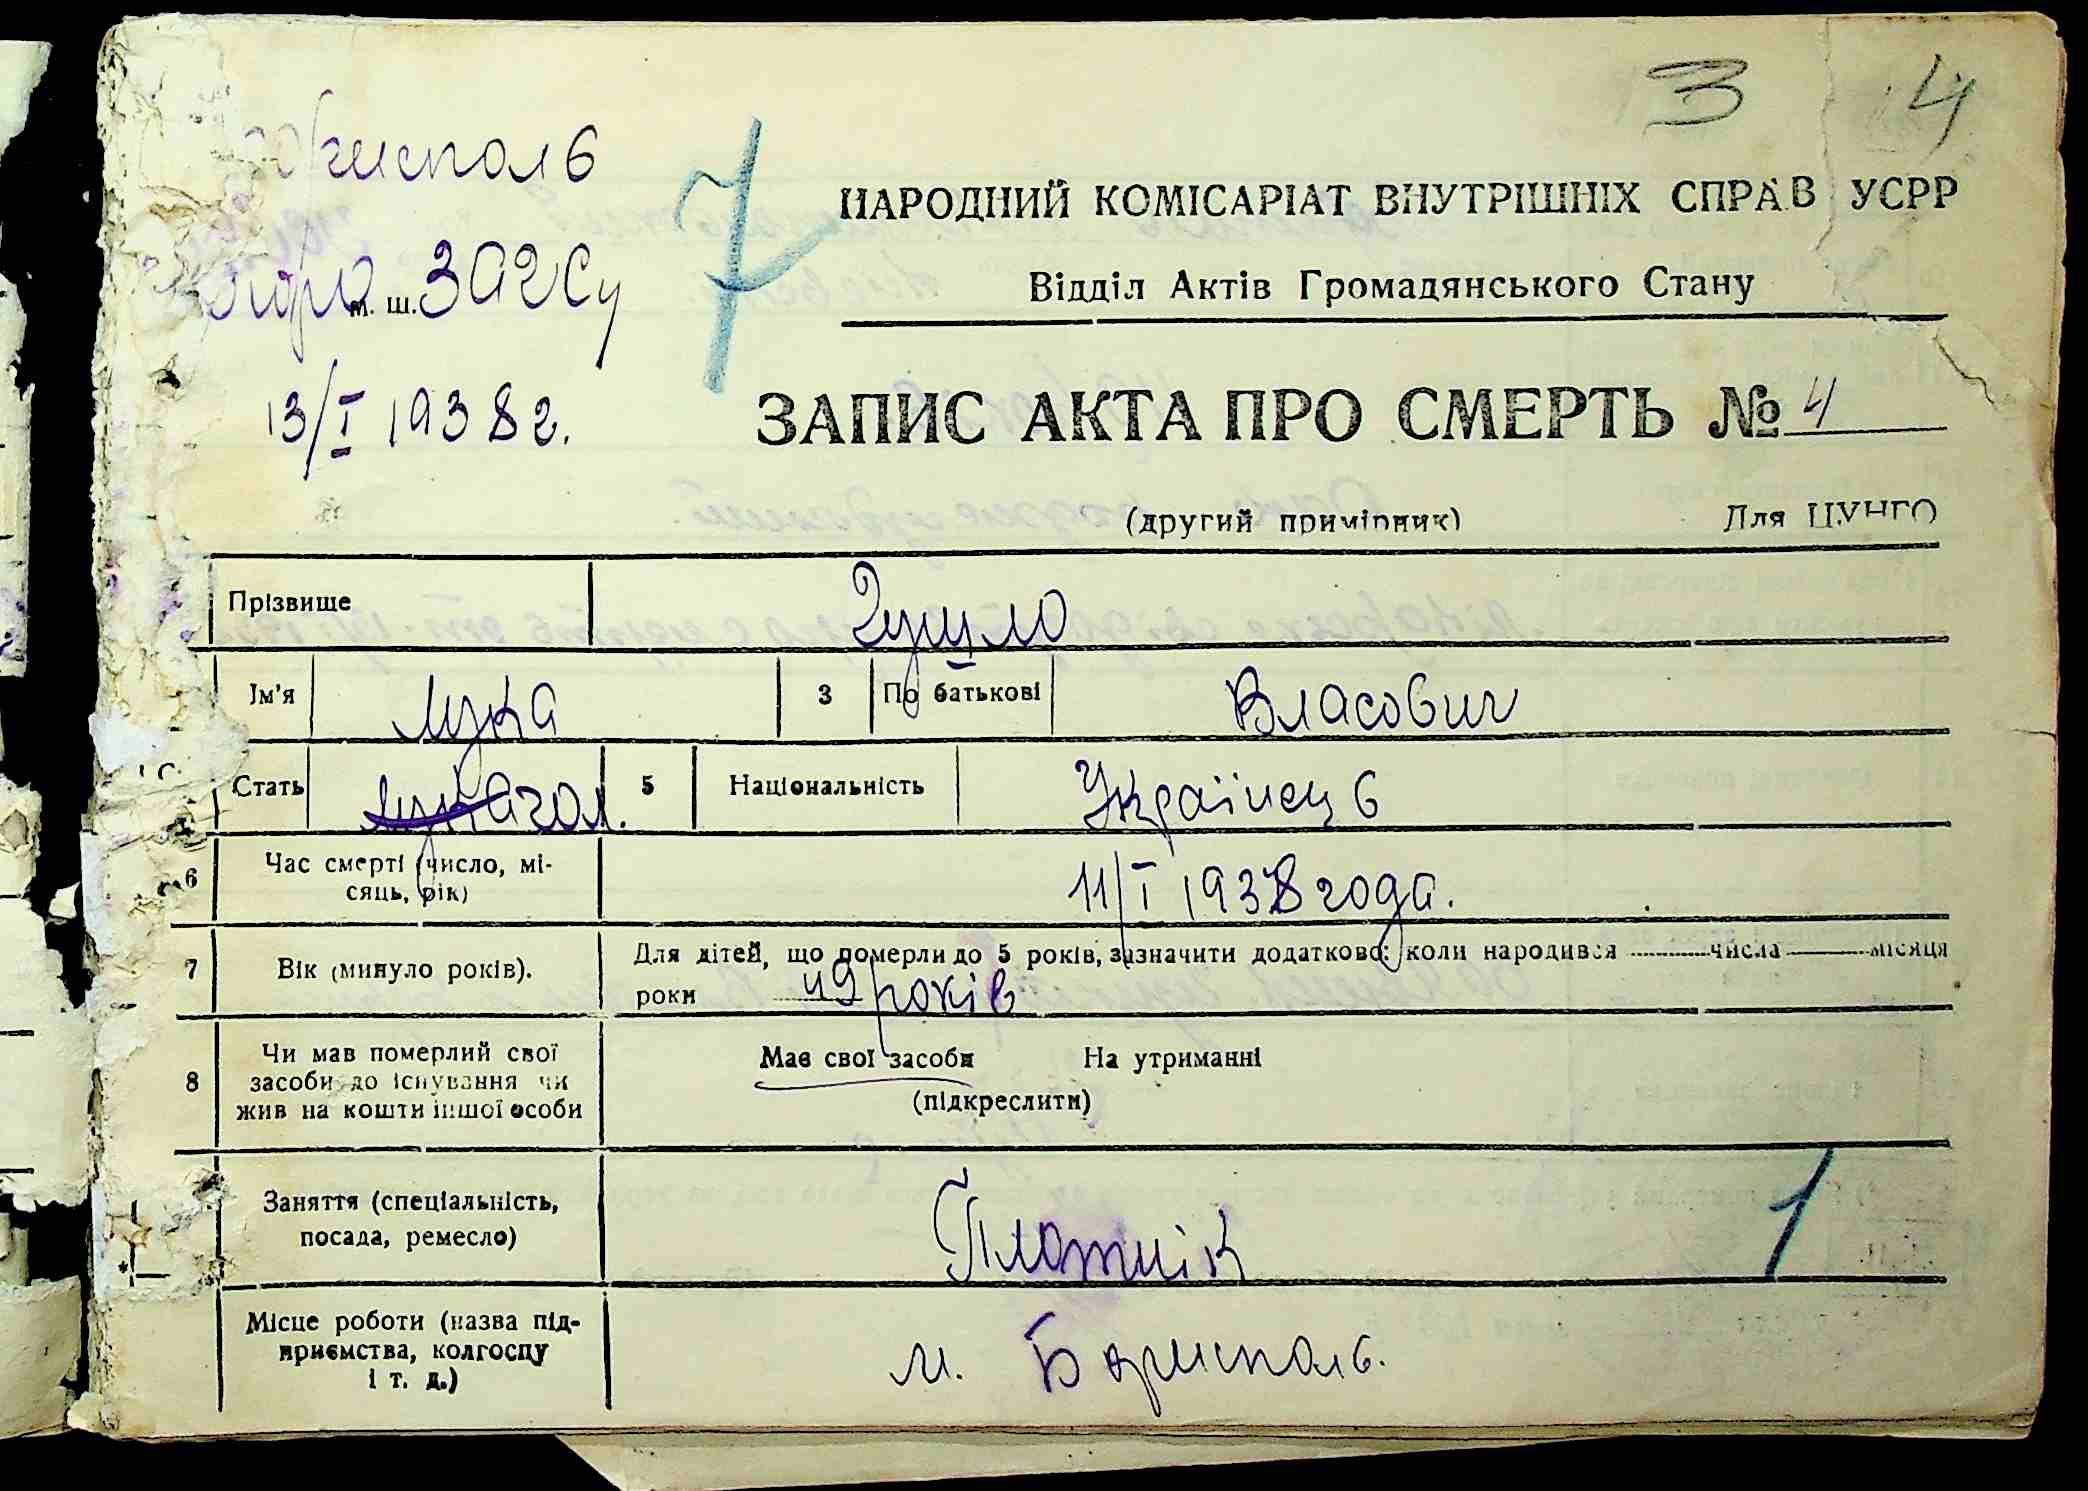 3 4
Борисполь
7
НАРОДНИЙ КОМІСАРІАТ ВНУТРІШНІХ СПРАВ УСРР
Бюро м. ш. ЗАГСу
Відділ Актів Громадянського Стану
13/I 1938 г.
ЗАПИС АКТА ПРО СМЕРТЬ № 4
(другий примірник) Для ЦУНГО
Прізвище
Ім'я Лука 3 По батькові Власович
Стать чол. 5 Національність Українець
6 Час смерті (число, мі-
сяць, рік) 11/I 1938 года.
7 Вік (минуло років). Для дітей, що померли до 5 років, зазначити додатково: коли народився числа місяця
роки 49 років
8 Чи мав померлий свої
засоби до існування чи
жив на кошти іншої особи
Має свої засоби На утриманні
(підкреслити)
Заняття (спеціальність,
посада, ремесло) Плотнік 1
Місце роботи (назва під-
приємства, колгоспу
і т. д.) м. Борисполь.